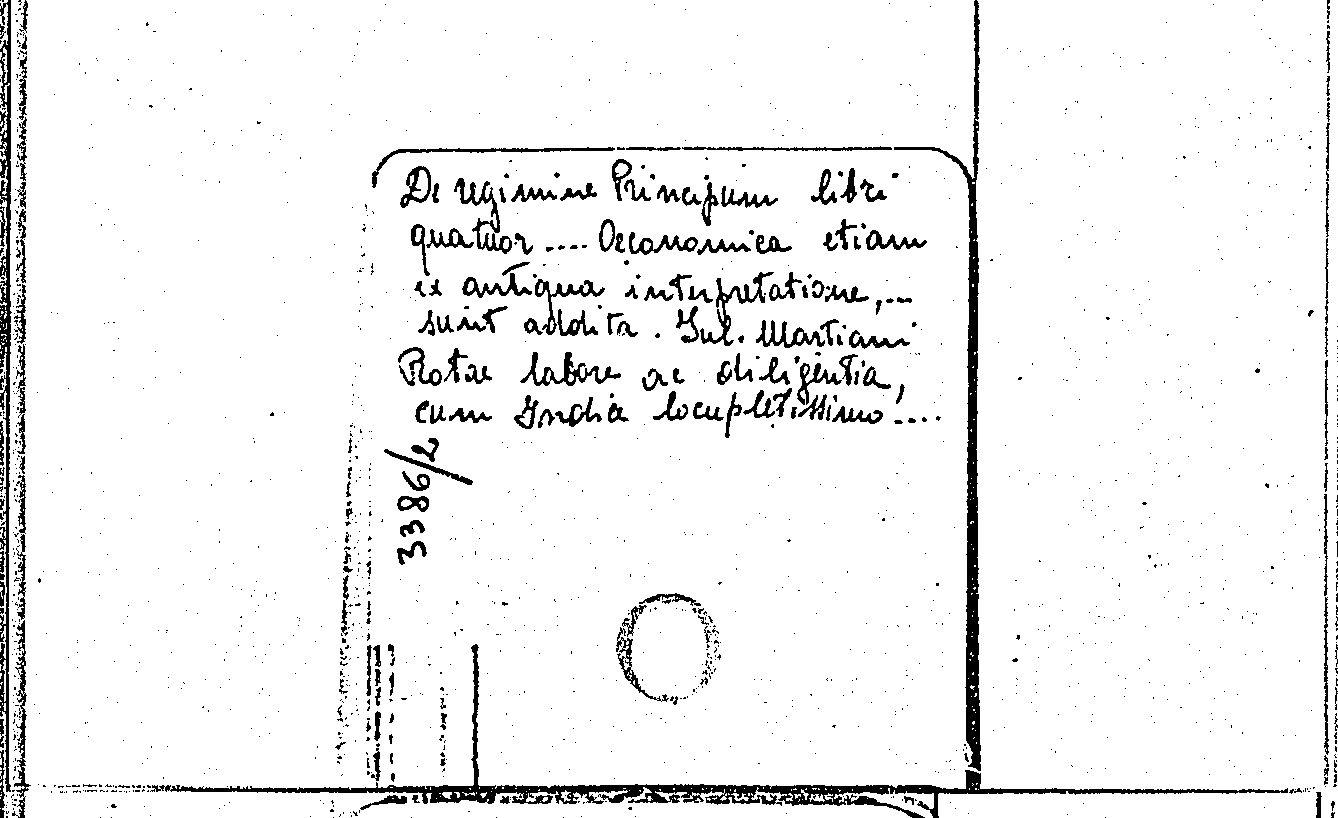 De regimine Principum libri
quatuor .... Oeconomica etiam
ex antiqua interpretatione,...
sunt addita. Jul. Martiani
Rotae labore ac diligentia,
cum Indice locupletissimo ....
3386/2